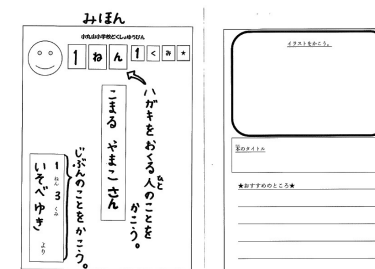 みほん
小丸山小学校どくしょゆうびん
1ねん1くみ★
ハガキをおくる人のことを
ひと
かこう。
こまる やまこ さん
じぶんのことをかこう。
1ねん3くみ
いそべ ゆき
より
イラストをかこう。
本のタイトル
★おすすめのところ★